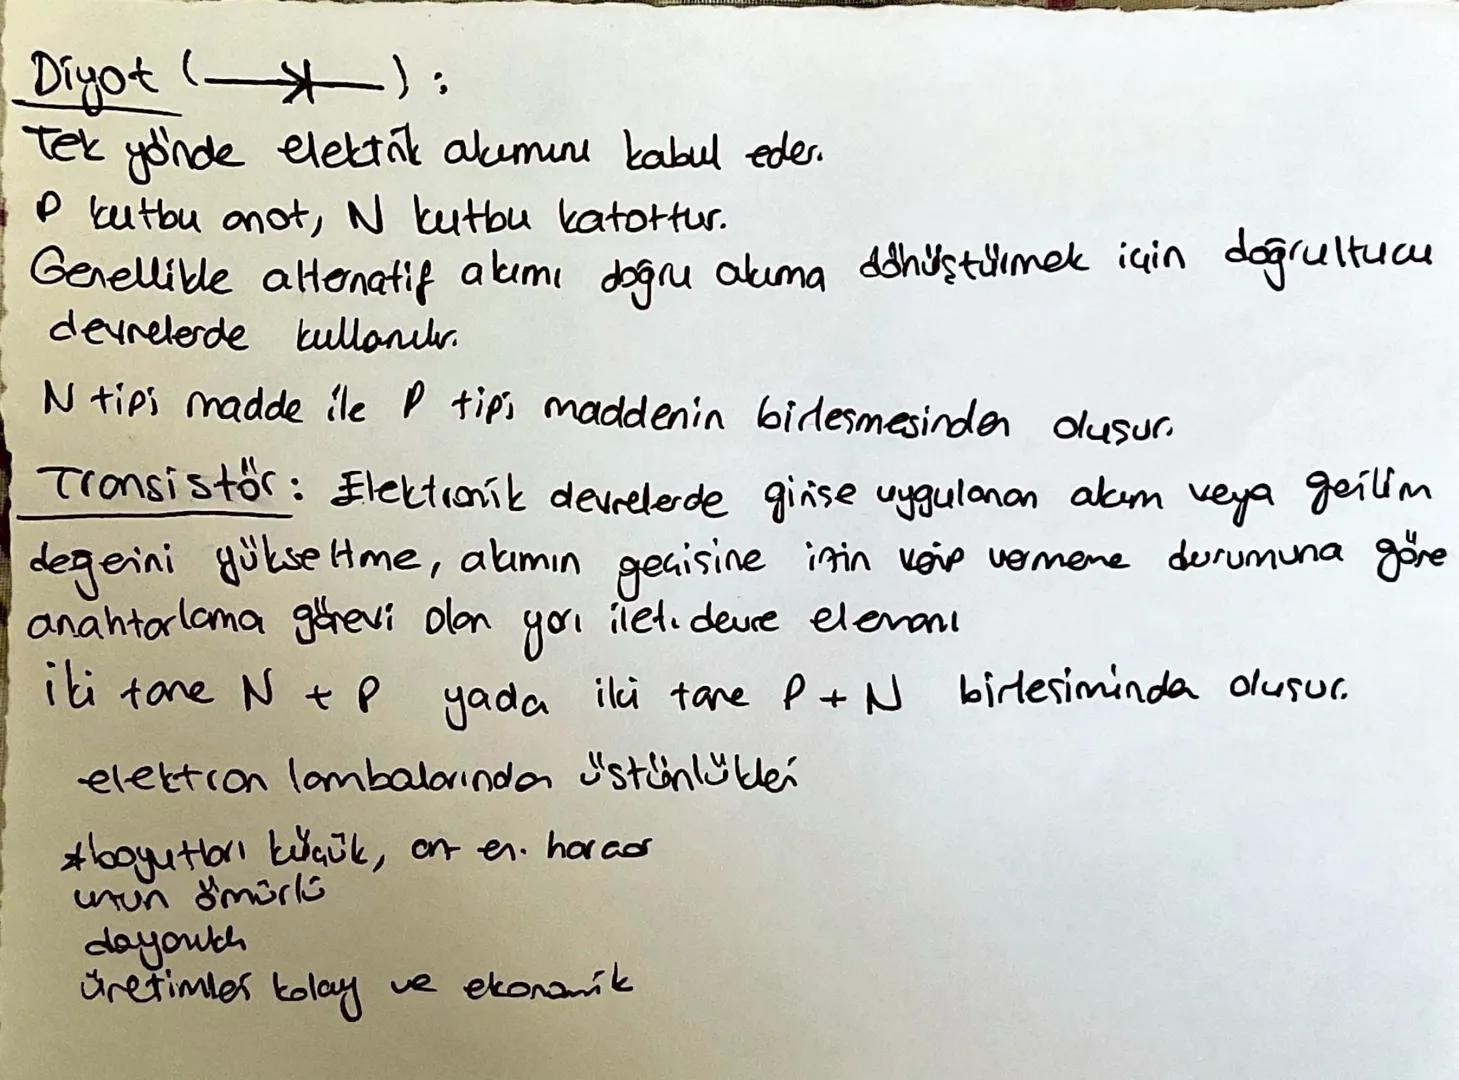 Diyot ( ) :
Tek yönde elektrik akımını kabul eder.
P kutbu anot, N kutbu katottur.
Genellikle alternatif akımı doğru akıma dönüştürmek için doğrultucu
devrelerde kullanılır.
N tipi madde ile P tipi maddenin birleşmesinden oluşur.
Transistör : Elektronik devrelerde girişe uygulanan akım veya gerilim
değerini yükseltme, akımın geçisine izin verip vermeme durumuna göre
anahtarlama görevi olan yarı ilet. devre elemanı
iki tane N + P yada iki tane P + N birleşiminda oluşur.
elektron lambalarından üstünlükleri
* boyutları küçük, az en. harcar
uzun ömürlü
dayanıklı
üretimleri kolay ve ekonomik